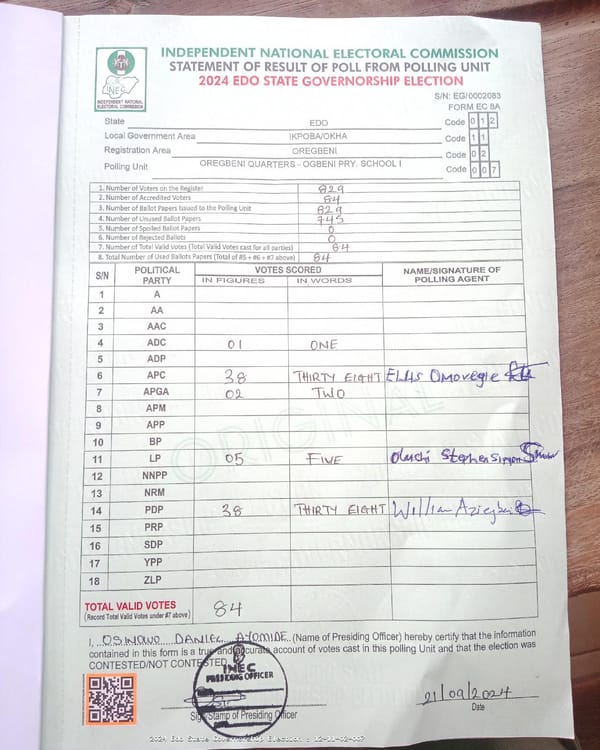 INDEPENDENT NATIONAL ELECTORAL COMMISSION
STATEMENT OF RESULT OF POLL FROM POLLING UNIT
2024 EDO STATE GOVERNORSHIP ELECTION
INEC
INDEPENDENT NATIONAL
ELECTORAL COMMISSION
S/N: EG/0002083
FORM EC 8A
State EDO Code 0 1 2
Local Government Area IKPOBA/OKHA Code 1 1
Registration Area OREGBENI Code 0 2
Polling Unit OREGBENI QUARTERS - OGBENI PRY. SCHOOL I Code 0 0 7
1. Number of Voters on the Register 829
2. Number of Accredited Voters 84
3. Number of Ballot Papers Issued to the Polling Unit 829
4. Number of Unused Ballot Papers 745
5. Number of Spoiled Ballot Papers 0
6. Number of Rejected Ballots 0
7. Number of Total Valid Votes (Total Valid Votes cast for all parties) 84
8. Total Number of Used Ballots Papers (Total of #5 + #6 + #7 above) 84
S/N POLITICAL PARTY VOTES SCORED NAME/SIGNATURE OF POLLING AGENT
IN FIGURES IN WORDS
1 A
2 AA
3 AAC
4 ADC 01 ONE
5 ADP
6 APC 38 THIRTY EIGHT ELIAS OMOVEGIE
7 APGA 02 TWO
8 APM
9 APP
10 BP
11 LP 05 FIVE Oluchi Stephen
12 NNPP
13 NRM
14 PDP 38 THIRTY EIGHT William
15 PRP
16 SDP
17 YPP
18 ZLP
ORIGINAL
TOTAL VALID VOTES 84
(Record Total Valid Votes under #7 above)
I, OSINOWO DANIEL AYOMIDE (Name of Presiding Officer) hereby certify that the information
contained in this form is a true and accurate account of votes cast in this polling Unit and that the election was
CONTESTED/NOT CONTESTED.
INEC
PRESIDING OFFICER
21/09/2024
Sign/Stamp of Presiding Officer Date
2024 Edo State Governorship Election : 12-11-02-007